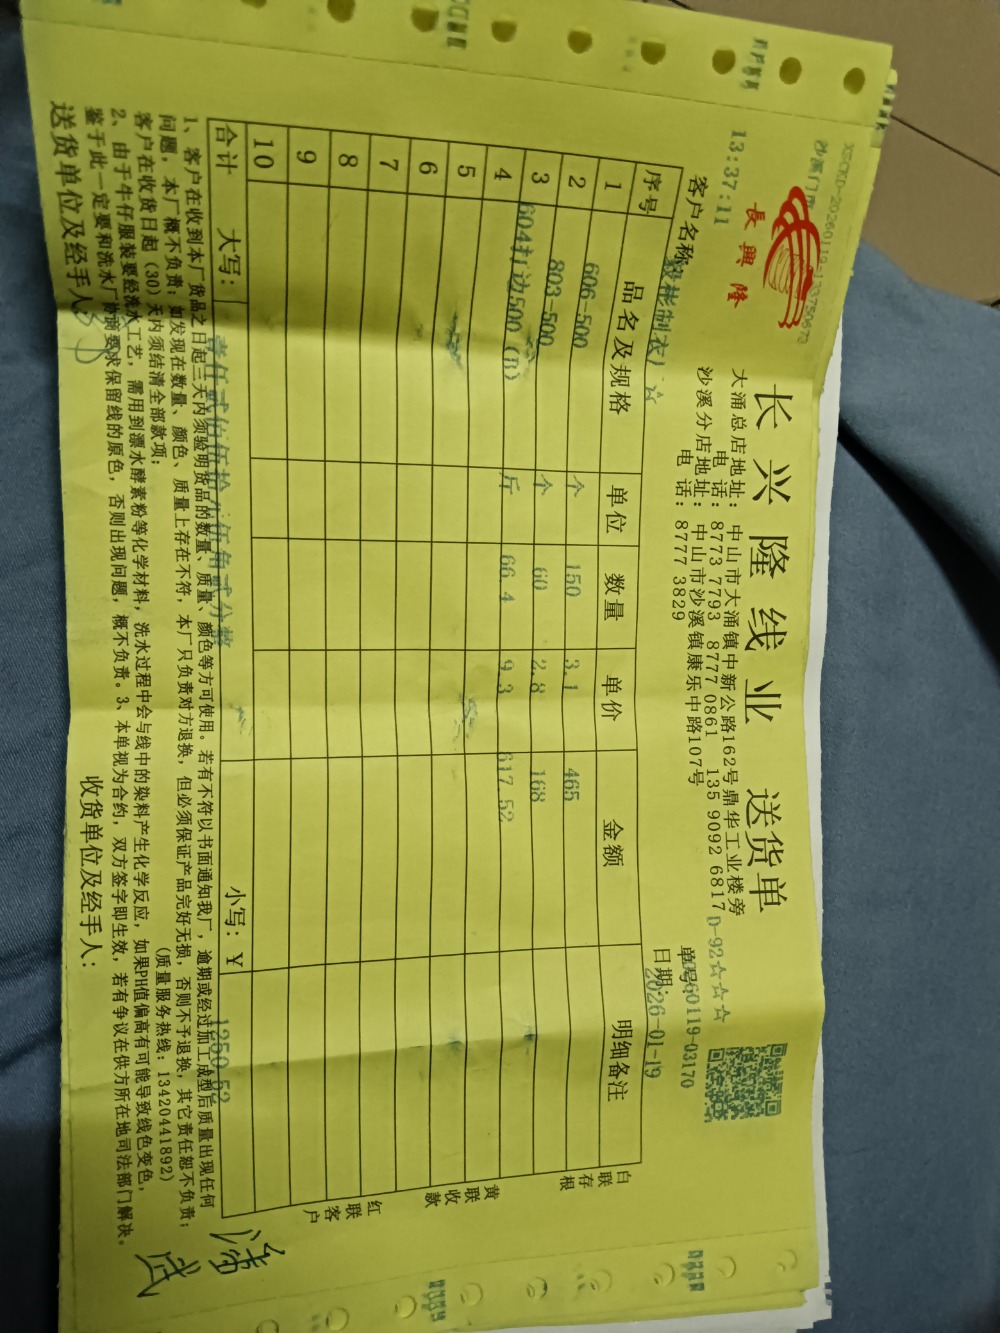 XSCKD-20260119-133750673
沙溪门市
13:37:11
長興隆
长兴隆线业 送货单
大涌总店地址：中山市大涌镇中新公路162号鼎华工业楼旁
电话：8773 7793 8777 0861 135 9092 6817
沙溪分店地址：中山市沙溪镇康乐中路107号
电话：8777 3829
D-92☆☆☆
单号：60119-03170
客户名称：毅彬制衣厂☆
日期：2026-01-19
序号 品名及规格 单位 数量 单价 金额 明细备注
1 606-500 个 150 3.1 465
2 803-500 个 60 2.8 168
3 604打边500（B） 斤 66.4 9.3 617.52
4
5
6
7
8
9
10
合计 大写：壹仟贰佰伍拾 伍角贰分整 小写：¥ 1250.52
白联存根
黄联收款
红联客户
1、客户在收到本厂货品之日起三天内须验明货品的数量、质量、颜色等方可使用。若有不符以书面通知我厂，逾期或经过加工成型后质量出现任何
问题，本厂概不负责；如发现在数量、颜色、质量上存在不符，本厂只负责对方退换，但必须保证产品完好无损，否则不予退换，其它责任恕不负责；
客户在收货日起（30）天内须结清全部款项；
（质量服务热线：13420441892）
2、由于牛仔服装要经洗水工艺，需用到漂水酵素粉等化学材料，洗水过程中会与线中的染料产生化学反应，如果PH值偏高有可能导致线色变色，
鉴于此一定要和洗水厂协商要求保留线的原色，否则出现问题，概不负责。3、本单视为合约，双方签字即生效，若有争议在供方所在地司法部门解决。
送货单位及经手人：
收货单位及经手人：